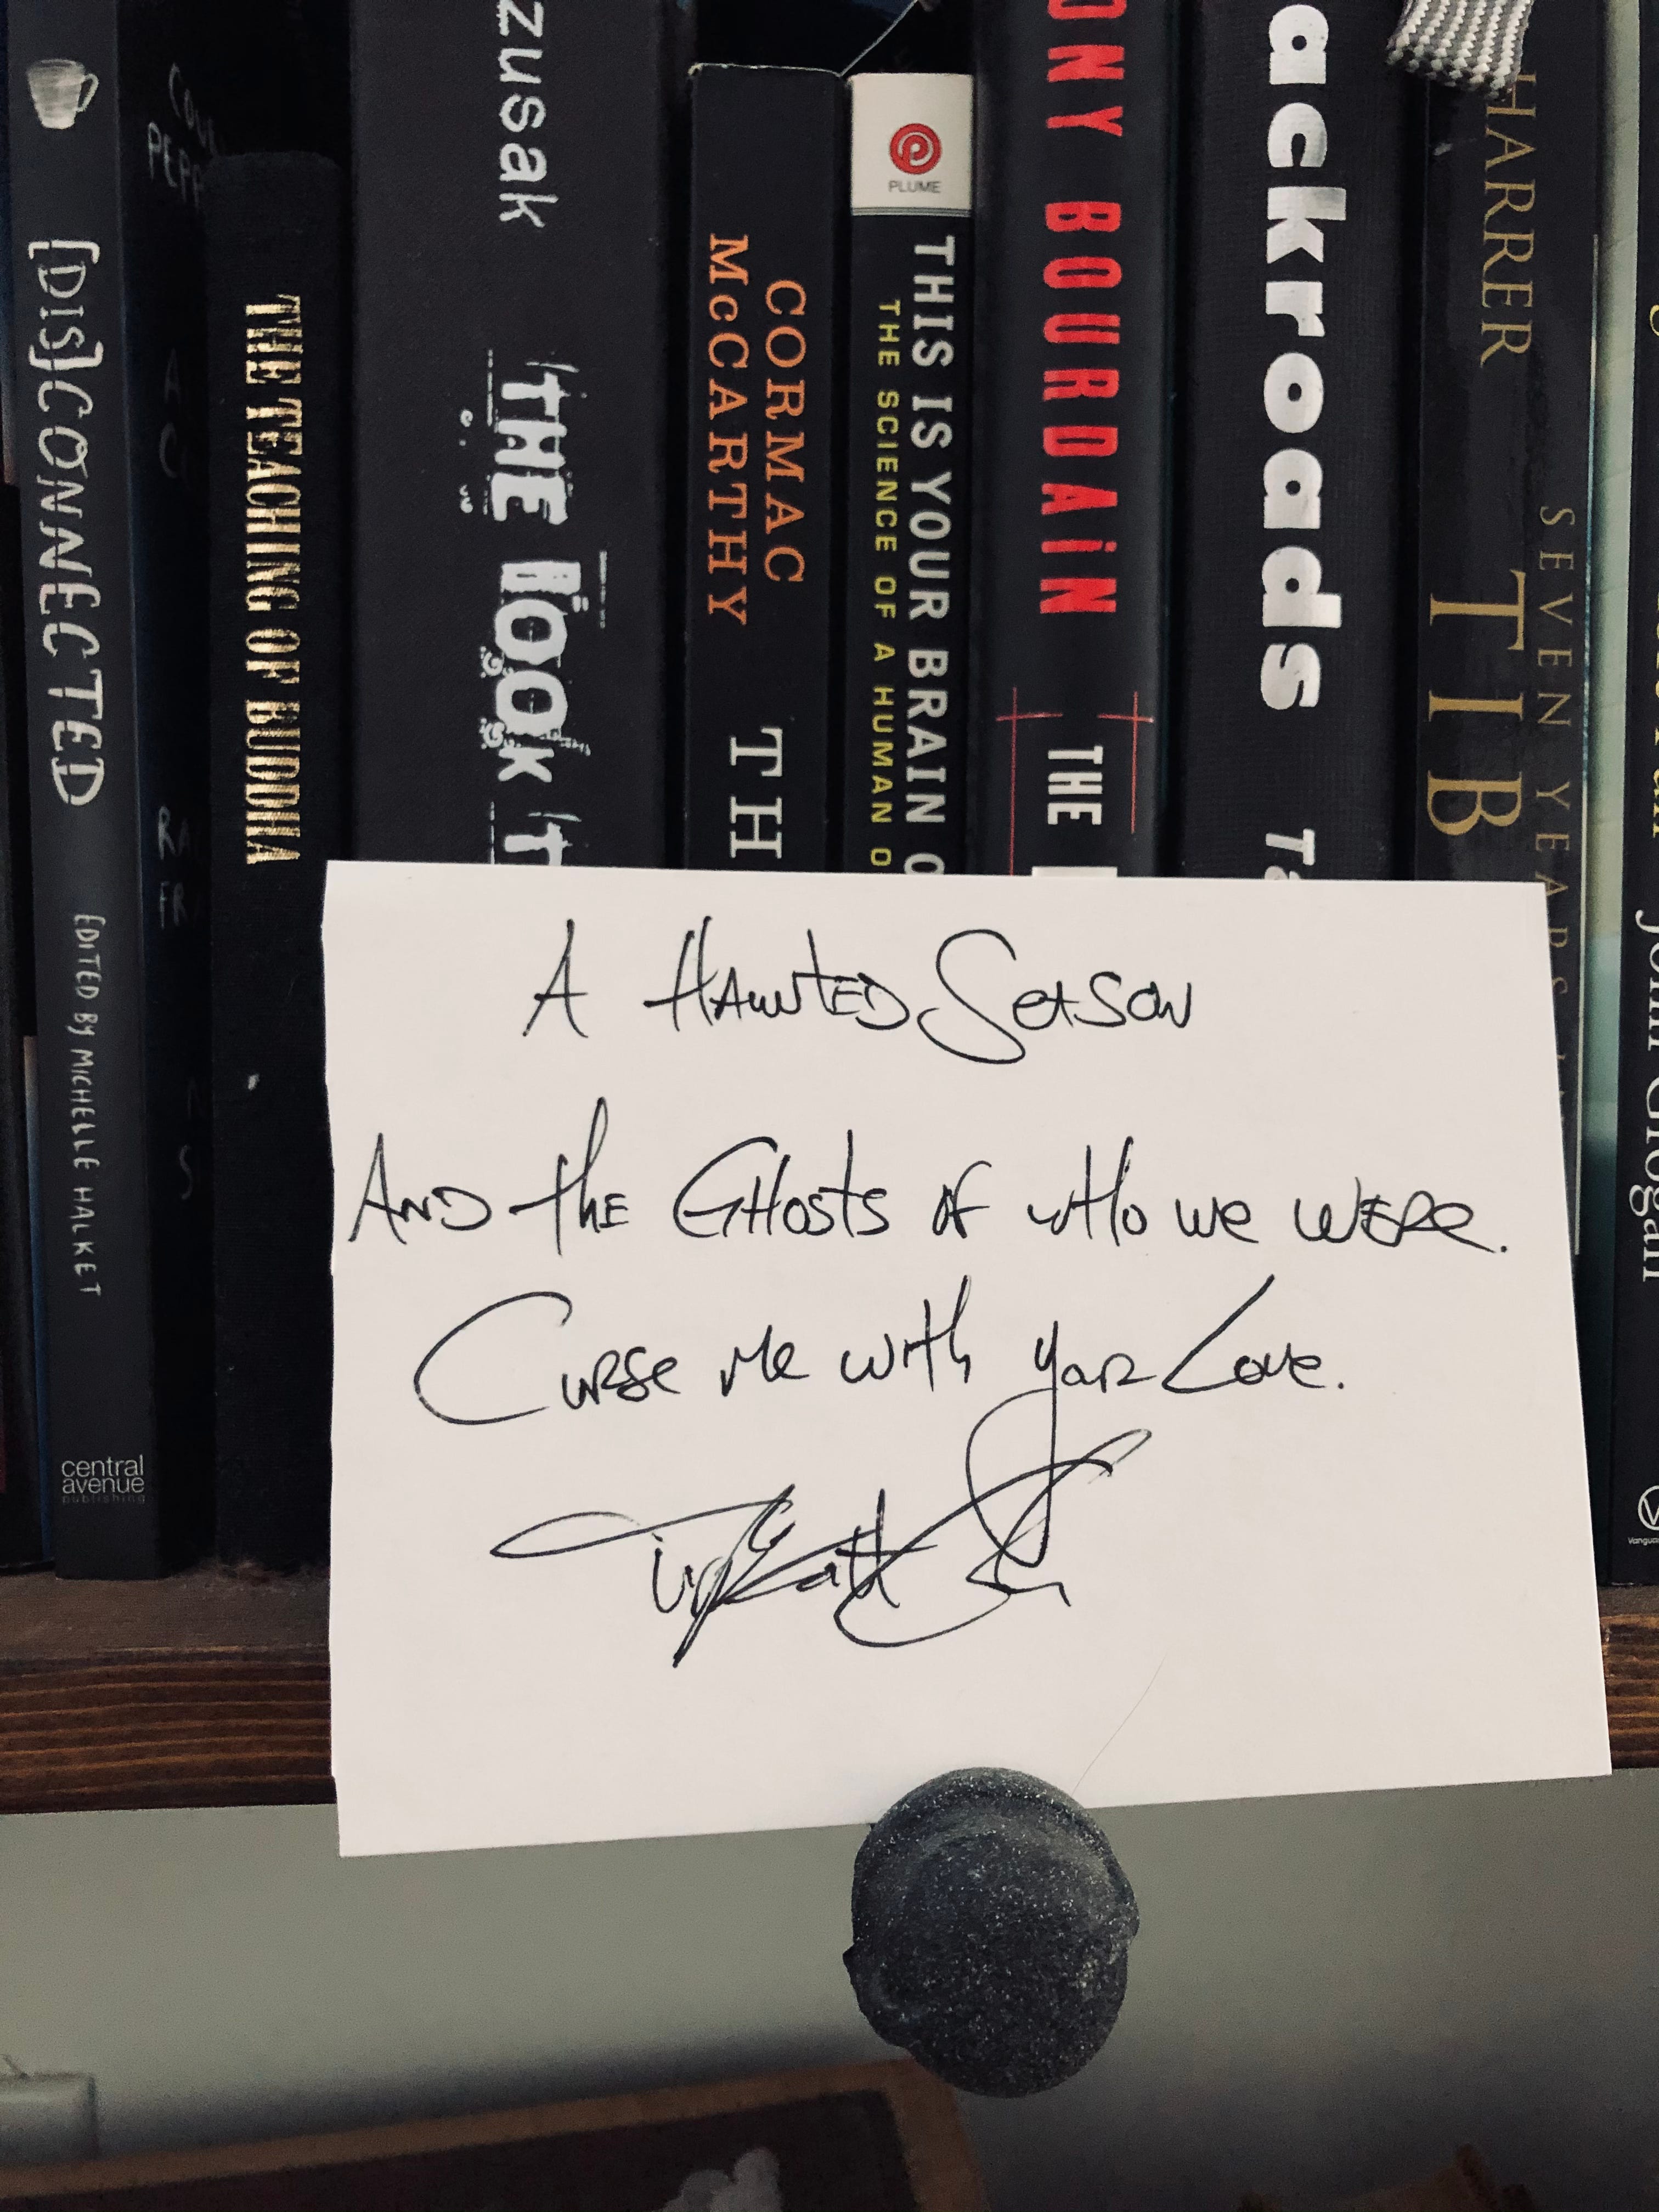 [DIS]CONNECTED
EDITED BY MICHELLE HALKET
central
avenue
publishing
THE TEACHING OF BUDDHA
zusak
THE BOOK T
CORMAC
McCARTHY
TH
PLUME
THIS IS YOUR BRAIN O
THE SCIENCE OF A HUMAN O
ONY BOURDAiN
THE
ackroads
Ta
HARRER
SEVEN YEARS
TIB
John Grogan
A HAUNTED SEASON
AND THE GHOSTS OF WHO WE WERE.
CURSE ME WITH YOUR LOVE.